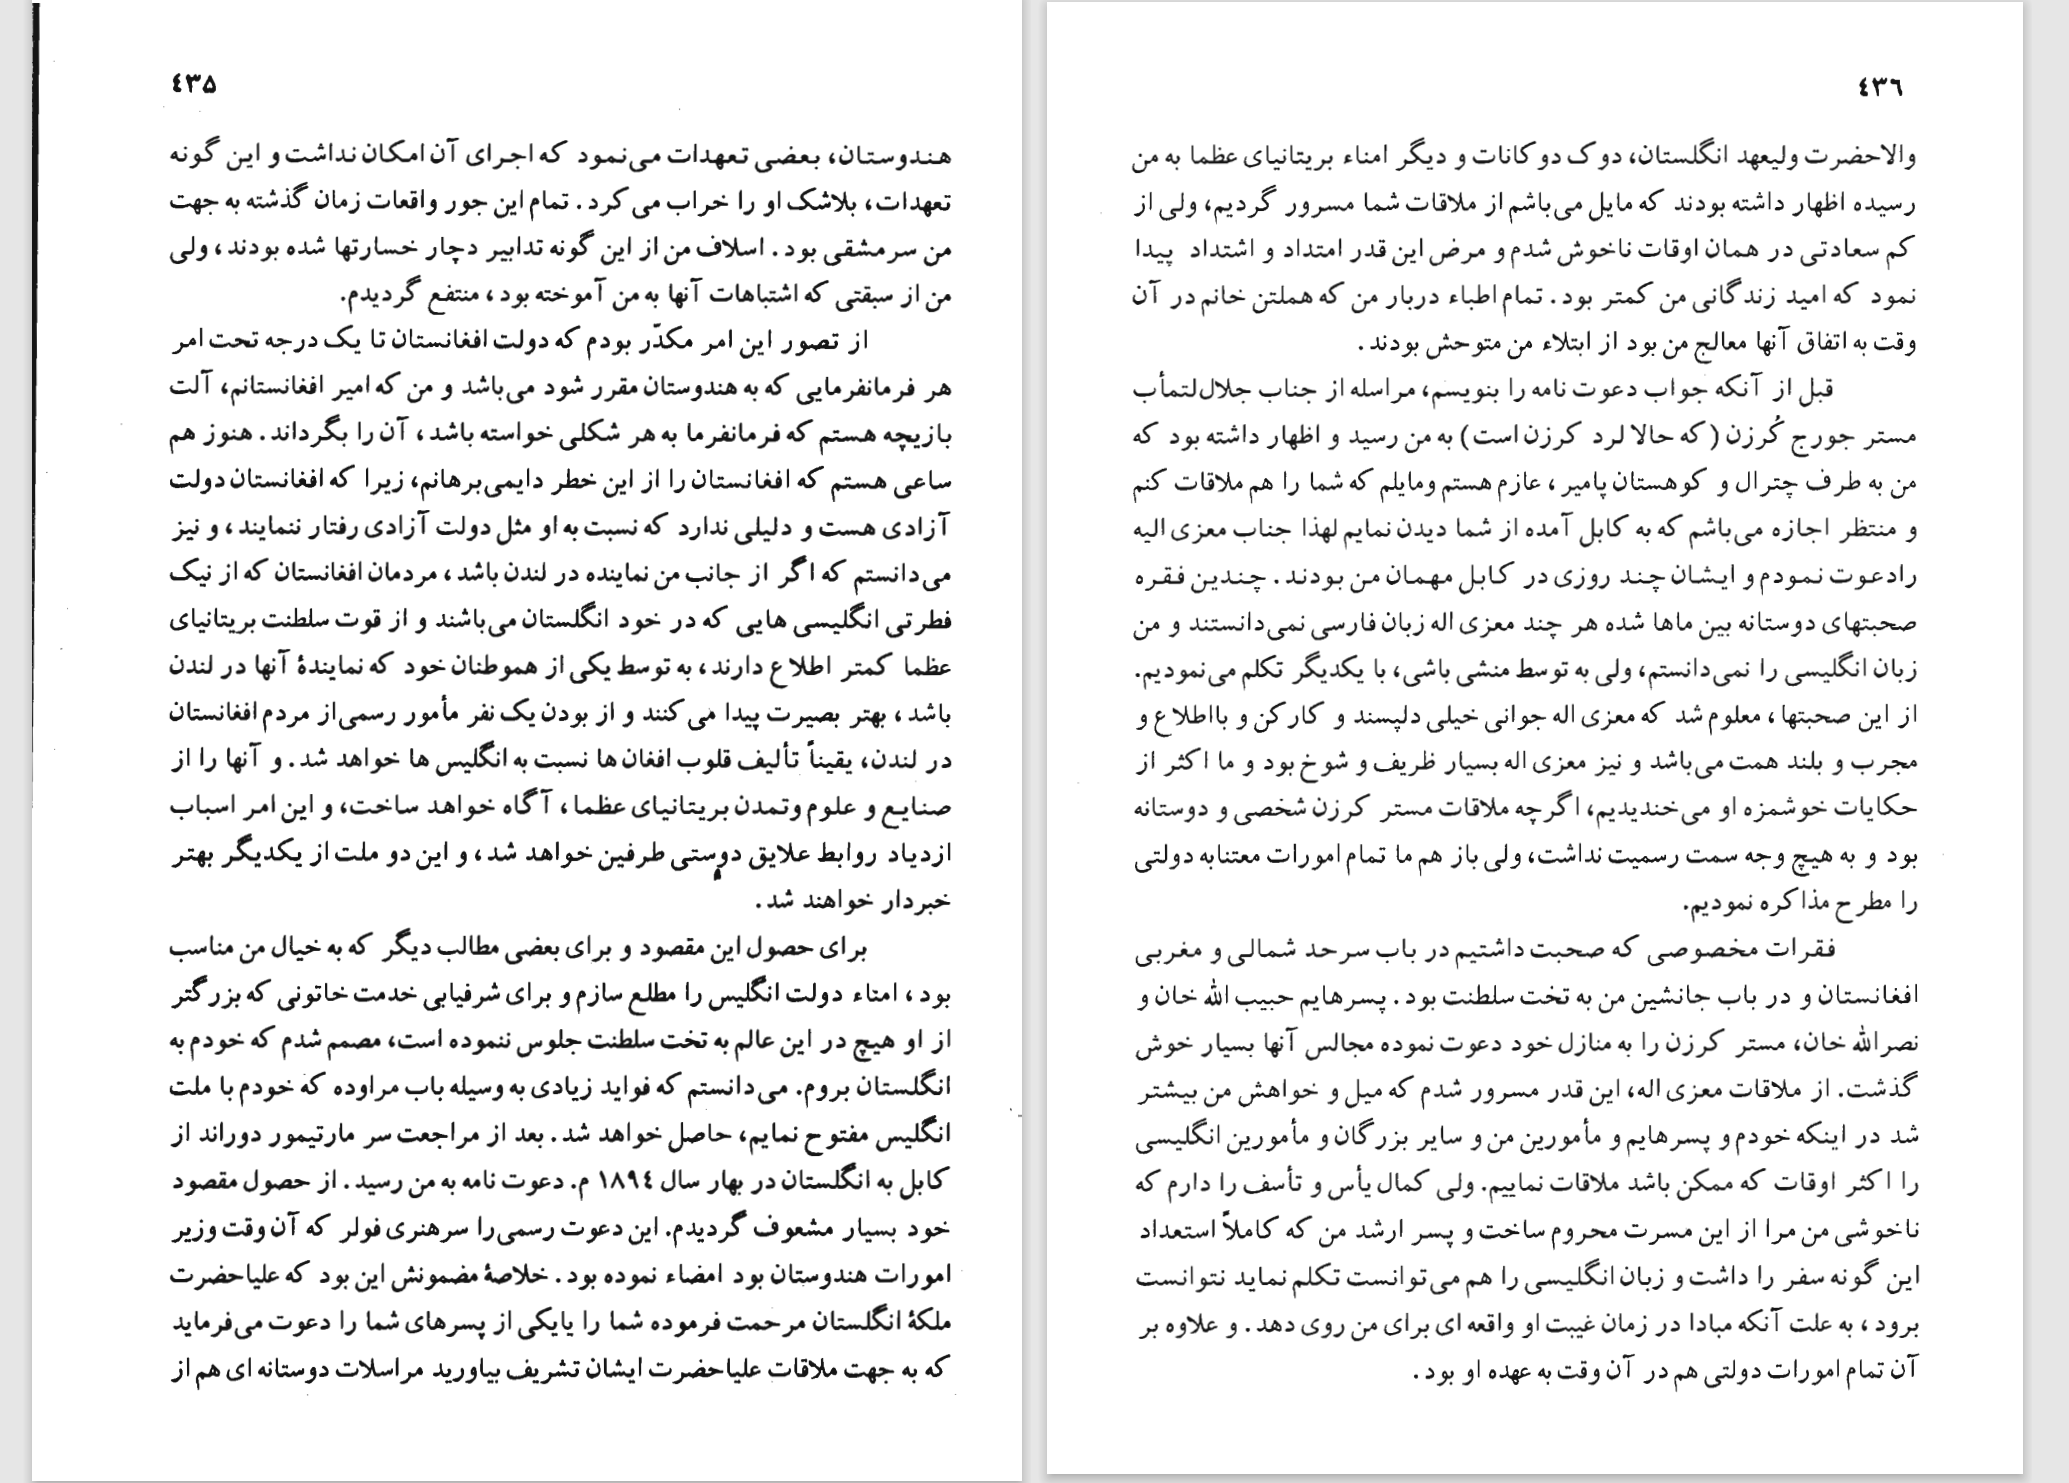 ٤٣۵
هندوستان، بعضی تعهدات می‌نمود که اجرای آن امکان نداشت و این گونه
تعهدات، بلاشک او را خراب می کرد. تمام این جور واقعات زمان گذشته به جهت
من سرمشقی بود. اسلاف من از این گونه تدابیر دچار خسارتها شده بودند، ولی
من از سبقتی که اشتباهات آنها به من آموخته بود، منتفع گردیدم.
از تصور این امر مکدّر بودم که دولت افغانستان تا یک درجه تحت امر
هر فرمانفرمایی که به هندوستان مقرر شود می‌باشد و من که امیر افغانستانم، آلت
بازیچه هستم که فرمانفرما به هر شکلی خواسته باشد، آن را بگرداند. هنوز هم
ساعی هستم که افغانستان را از این خطر دایمی‌برهانم، زیرا که افغانستان دولت
آزادی هست و دلیلی ندارد که نسبت به او مثل دولت آزادی رفتار ننمایند، و نیز
می‌دانستم که اگر از جانب من نماینده در لندن باشد، مردمان افغانستان که از نیک
فطرتی انگلیسی هایی که در خود انگلستان می‌باشند و از قوت سلطنت بریتانیای
عظما کمتر اطلاع دارند، به توسط یکی از هموطنان خود که نمایندهٔ آنها در لندن
باشد، بهتر بصیرت پیدا می کنند و از بودن یک نفر مأمور رسمی‌از مردم افغانستان
در لندن، یقیناً تألیف قلوب افغان ها نسبت به انگلیس ها خواهد شد. و آنها را از
صنایع و علوم وتمدن بریتانیای عظما، آگاه خواهد ساخت، و این امر اسباب
ازدیاد روابط علایق دوستی طرفین خواهد شد، و این دو ملت از یکدیگر بهتر
خبردار خواهند شد.
برای حصول این مقصود و برای بعضی مطالب دیگر که به خیال من مناسب
بود، امتاء دولت انگلیس را مطلع سازم و برای شرفیابی خدمت خاتونی که بزرگتر
از او هیچ در این عالم به تخت سلطنت جلوس ننموده است، مصمم شدم که خودم به
انگلستان بروم. می‌دانستم که فواید زیادی به وسیله باب مراوده که خودم با ملت
انگلیس مفتوح نمایم، حاصل خواهد شد. بعد از مراجعت سر مارتیمور دوراند از
کابل به انگلستان در بهار سال ۱۸۹٤ م. دعوت نامه به من رسید. از حصول مقصود
خود بسیار مشعوف گردیدم. این دعوت رسمی‌را سرهنری فولر که آن وقت وزیر
امورات هندوستان بود امضاء نموده بود. خلاصهٔ مضمونش این بود که علیاحضرت
ملکهٔ انگلستان مرحمت فرموده شما را یایکی از پسرهای شما را دعوت می‌فرماید
که به جهت ملاقات علیاحضرت ایشان تشریف بیاورید مراسلات دوستانه ای هم از
٤٣٦
والاحضرت ولیعهد انگلستان، دوک دوکانات و دیگر امناء بریتانیای عظما به من
رسیده اظهار داشته بودند که مایل می‌باشم از ملاقات شما مسرور گردیم، ولی از
کم سعادتی در همان اوقات ناخوش شدم و مرض این قدر امتداد و اشتداد پیدا
نمود که امید زندگانی من کمتر بود. تمام اطباء دربار من که هملتن خانم در آن
وقت به اتفاق آنها معالج من بود از ابتلاء من متوحش بودند.
قبل از آنکه جواب دعوت نامه را بنویسم، مراسله از جناب جلال‌لتمأب
مستر جورج کُرزن (که حالا لرد کرزن است) به من رسید و اظهار داشته بود که
من به طرف چترال و کوهستان پامیر، عازم هستم ومایلم که شما را هم ملاقات کنم
و منتظر اجازه می‌باشم که به کابل آمده از شما دیدن نمایم لهذا جناب معزی الیه
رادعوت نمودم و ایشان چند روزی در کابل مهمان من بودند. چندین فقره
صحبتهای دوستانه بین ماها شده هر چند معزی اله زبان فارسی نمی‌دانستند و من
زبان انگلیسی را نمی‌دانستم، ولی به توسط منشی باشی، با یکدیگر تکلم می‌نمودیم.
از این صحبتها، معلوم شد که معزی اله جوانی خیلی دلپسند و کارکن و بااطلاع و
مجرب و بلند همت می‌باشد و نیز معزی اله بسیار ظریف و شوخ بود و ما اکثر از
حکایات خوشمزه او می‌خندیدیم، اگرچه ملاقات مستر کرزن شخصی و دوستانه
بود و به هیچ وجه سمت رسمیت نداشت، ولی باز هم ما تمام امورات معتنابه دولتی
را مطرح مذاکره نمودیم.
فقرات مخصوصی که صحبت داشتیم در باب سرحد شمالی و مغربی
افغانستان و در باب جانشین من به تخت سلطنت بود. پسرهایم حبیب الله خان و
نصرالله خان، مستر کرزن را به منازل خود دعوت نموده مجالس آنها بسیار خوش
گذشت. از ملاقات معزی اله، این قدر مسرور شدم که میل و خواهش من بیشتر
شد در اینکه خودم و پسرهایم و مأمورین من و سایر بزرگان و مأمورین انگلیسی
را اکثر اوقات که ممکن باشد ملاقات نماییم. ولی کمال یأس و تأسف را دارم که
ناخوشی من مرا از این مسرت محروم ساخت و پسر ارشد من که کاملاً استعداد
این گونه سفر را داشت و زبان انگلیسی را هم می‌توانست تکلم نماید نتوانست
برود، به علت آنکه مبادا در زمان غیبت او واقعه ای برای من روی دهد. و علاوه بر
آن تمام امورات دولتی هم در آن وقت به عهده او بود.